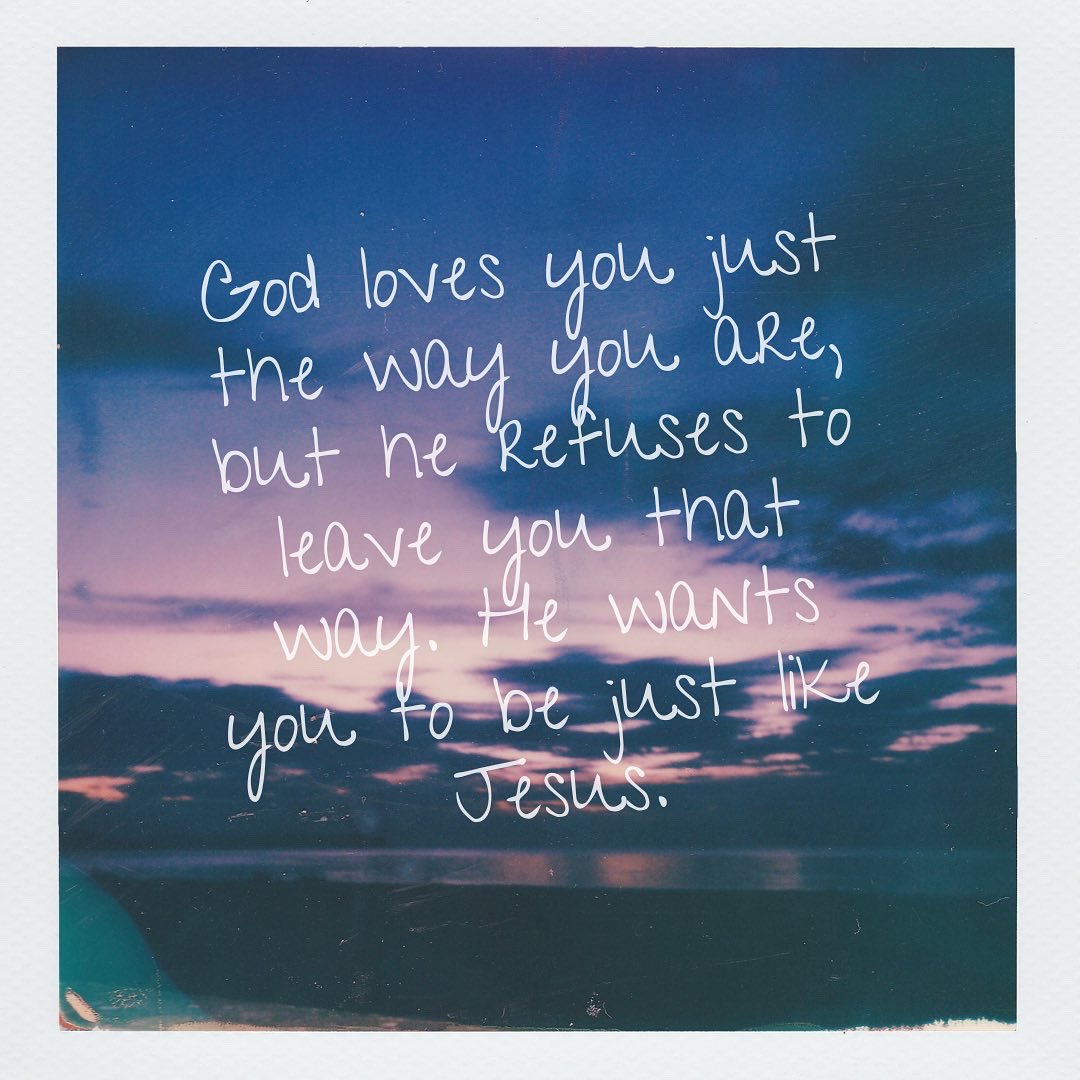 God loves you just
the way you are,
but he refuses to
leave you that
way. He wants
you to be just like
Jesus.